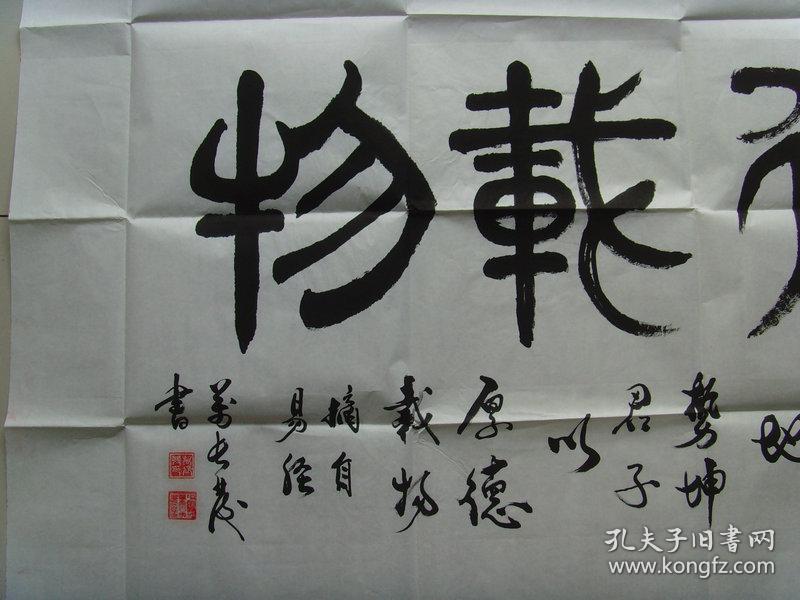 載物
地
勢坤
君子
以
厚德
載物
摘自
易经
書
孔夫子旧书网
www.kongfz.com